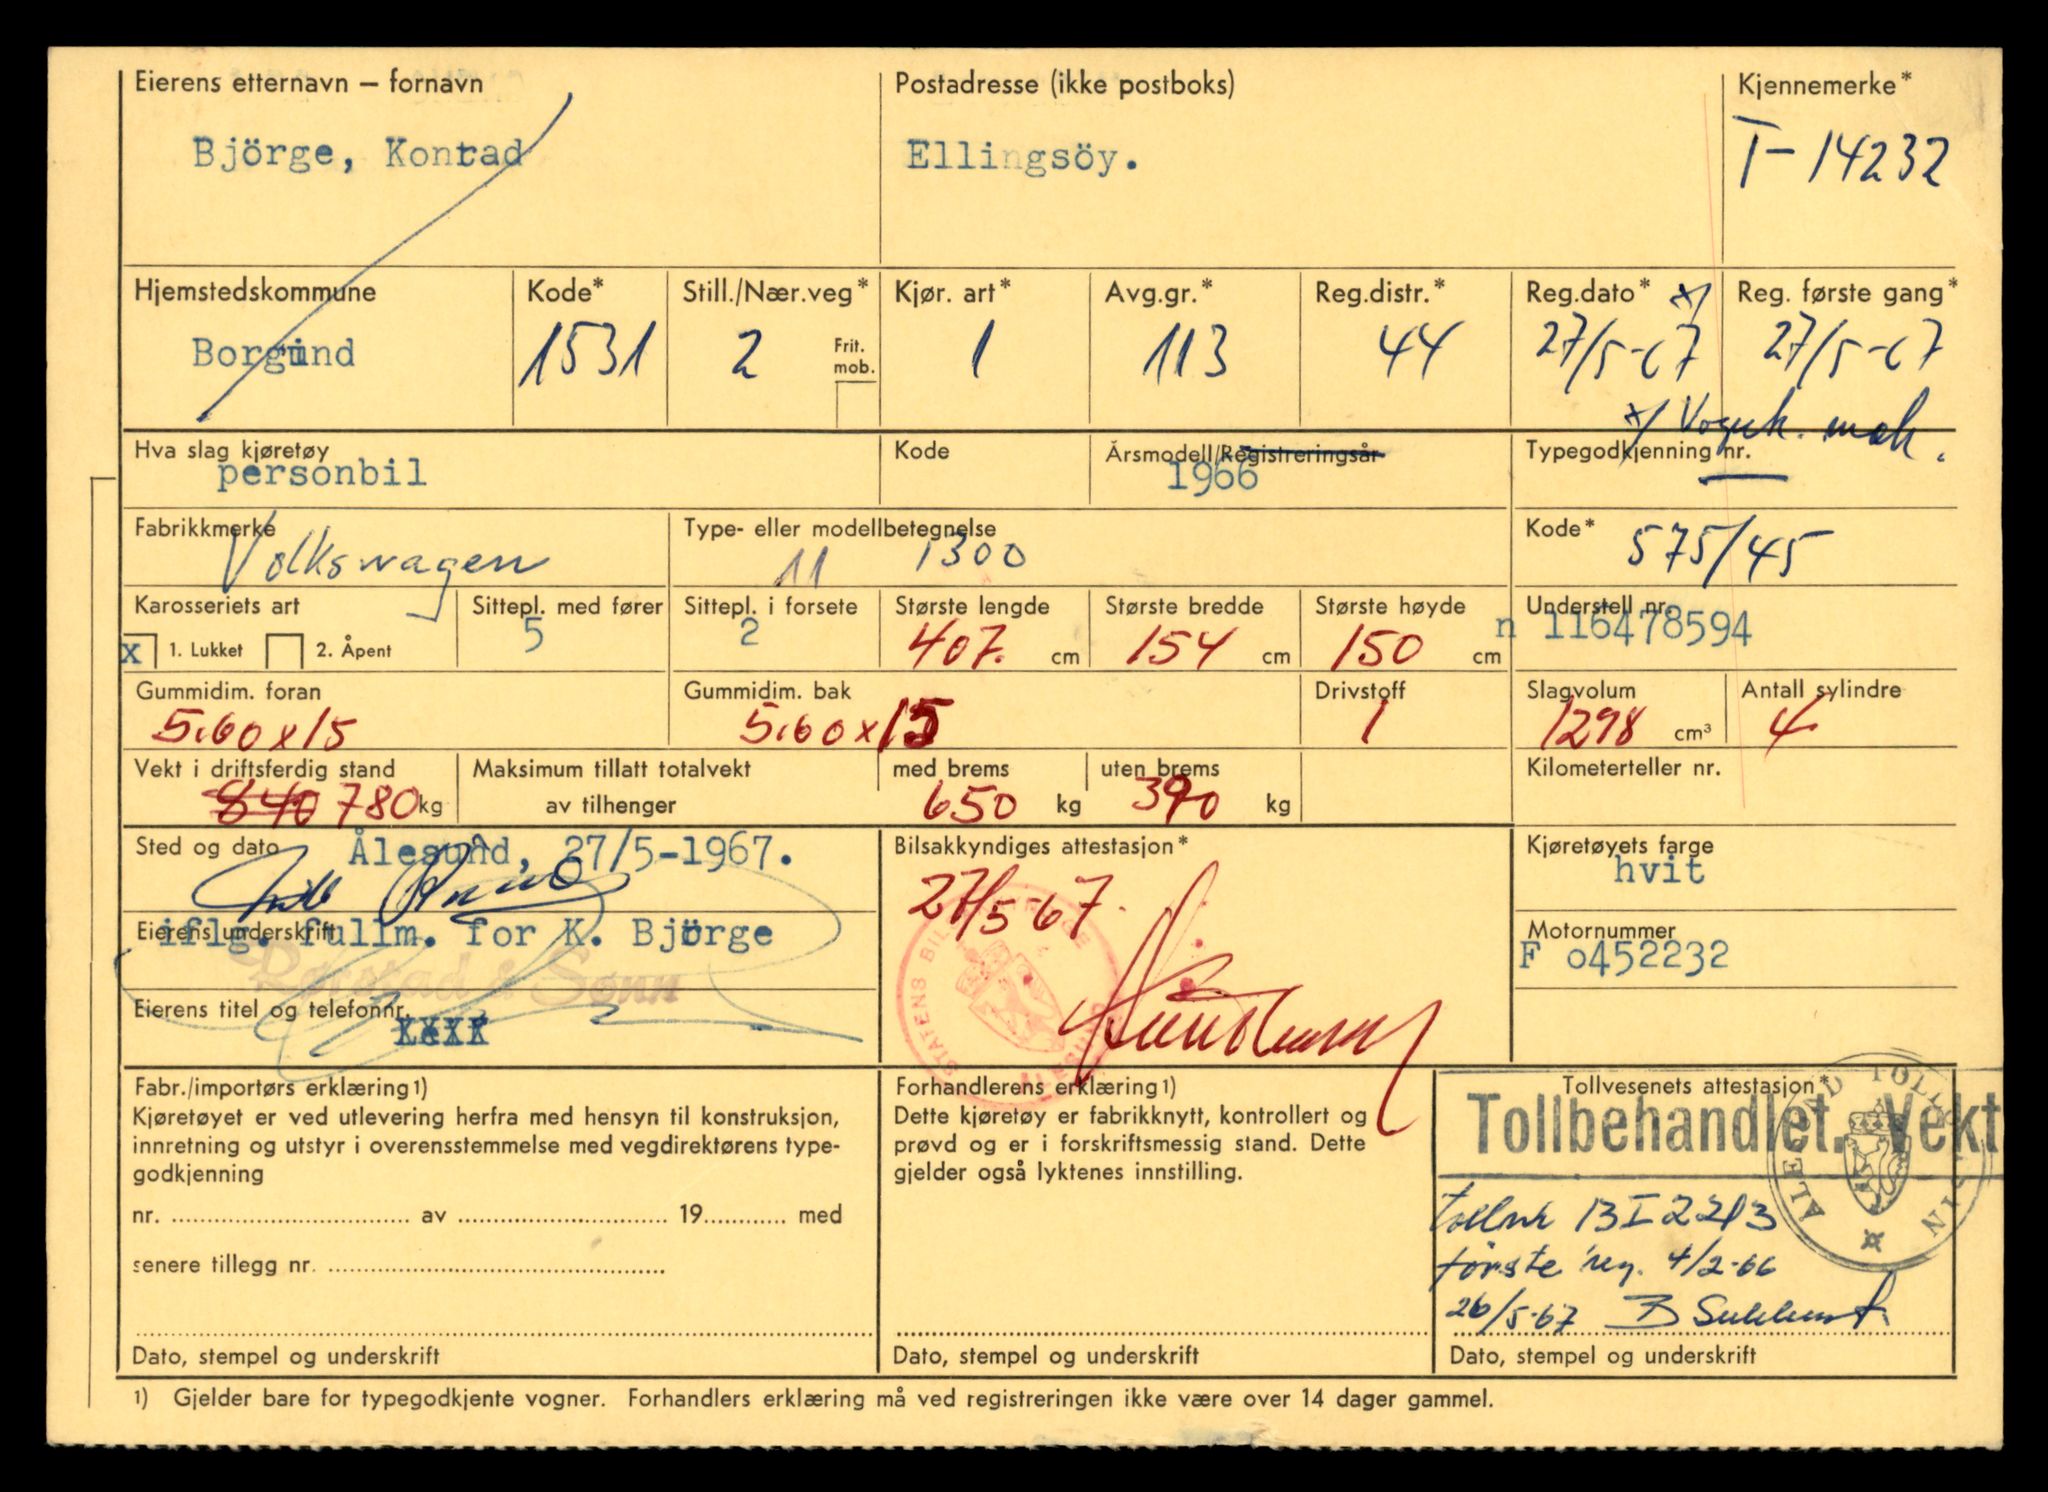 Eierens etternavn – fornavn
Björge, Konrad
Postadresse (ikke postboks)
Ellingsöy.
Kjennemerke*
T-14232
Hjemstedskommune
Borgund
Kode*
1531
Still./Nær.veg*
2
Frit. mob.
Kjør. art*
1
Avg.gr.*
113
Reg.distr.*
44
Reg.dato* x/
27/5-67
Reg. første gang*
27/5-67
x/ Vognk. mak.
Hva slag kjøretøy
personbil
Kode
Årsmodell/Registreringsår
1966
Typegodkjenning nr.
—
Fabrikkmerke
Volkswagen
Type- eller modellbetegnelse
11 1300
Kode*
575/45
Karosseriets art
x 1. Lukket 2. Åpent
Sittepl. med fører
5
Sittepl. i forsete
2
Største lengde
407. cm
Største bredde
154 cm
Største høyde
150 cm
Understell nr.
n 116478594
Gummidim. foran
5.60x15
Gummidim. bak
5.60x15
Drivstoff
1
Slagvolum
1298 cm³
Antall sylindre
4
Vekt i driftsferdig stand
840 780 kg
Maksimum tillatt totalvekt
av tilhenger
med brems
650 kg
uten brems
390 kg
Kilometerteller nr.
Sted og dato
Ålesund, 27/5-1967.
Eierens underskrift
iflg. fullm. for K. Björge
Rørstad & Sønn
Eierens titel og telefonnr.
Bilsakkyndiges attestasjon*
27/5-67.
STATENS BIL
Kjøretøyets farge
hvit
Motornummer
F 0452232
Fabr./importørs erklæring1)
Kjøretøyet er ved utlevering herfra med hensyn til konstruksjon,
innretning og utstyr i overensstemmelse med vegdirektørens type-
godkjenning
nr. ........ av ........ 19........ med
senere tillegg nr. ........
Dato, stempel og underskrift
Forhandlerens erklæring1)
Dette kjøretøy er fabrikknytt, kontrollert og
prøvd og er i forskriftsmessig stand. Dette
gjelder også lyktenes innstilling.
Dato, stempel og underskrift
Tollvesenets attestasjon*
Tollbehandlet. Vekt
første reg. 4/2-66
26/5-67
Dato, stempel og underskrift
1) Gjelder bare for typegodkjente vogner. Forhandlers erklæring må ved registreringen ikke være over 14 dager gammel.